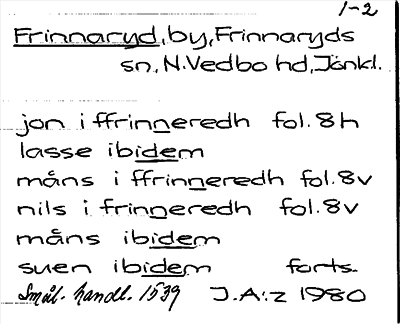 1-2
Frinnaryd, by, Frinnaryds
sn, N. Vedbo hd, Jönkl.
jon i ffrinneredh fol. 8 h
lasse ibidem
måns i ffrinneredh fol. 8v
nils i frinneredh fol. 8v
måns ibidem
suen ibidem forts.
Smål. handl. 1539 J.A:z 1980